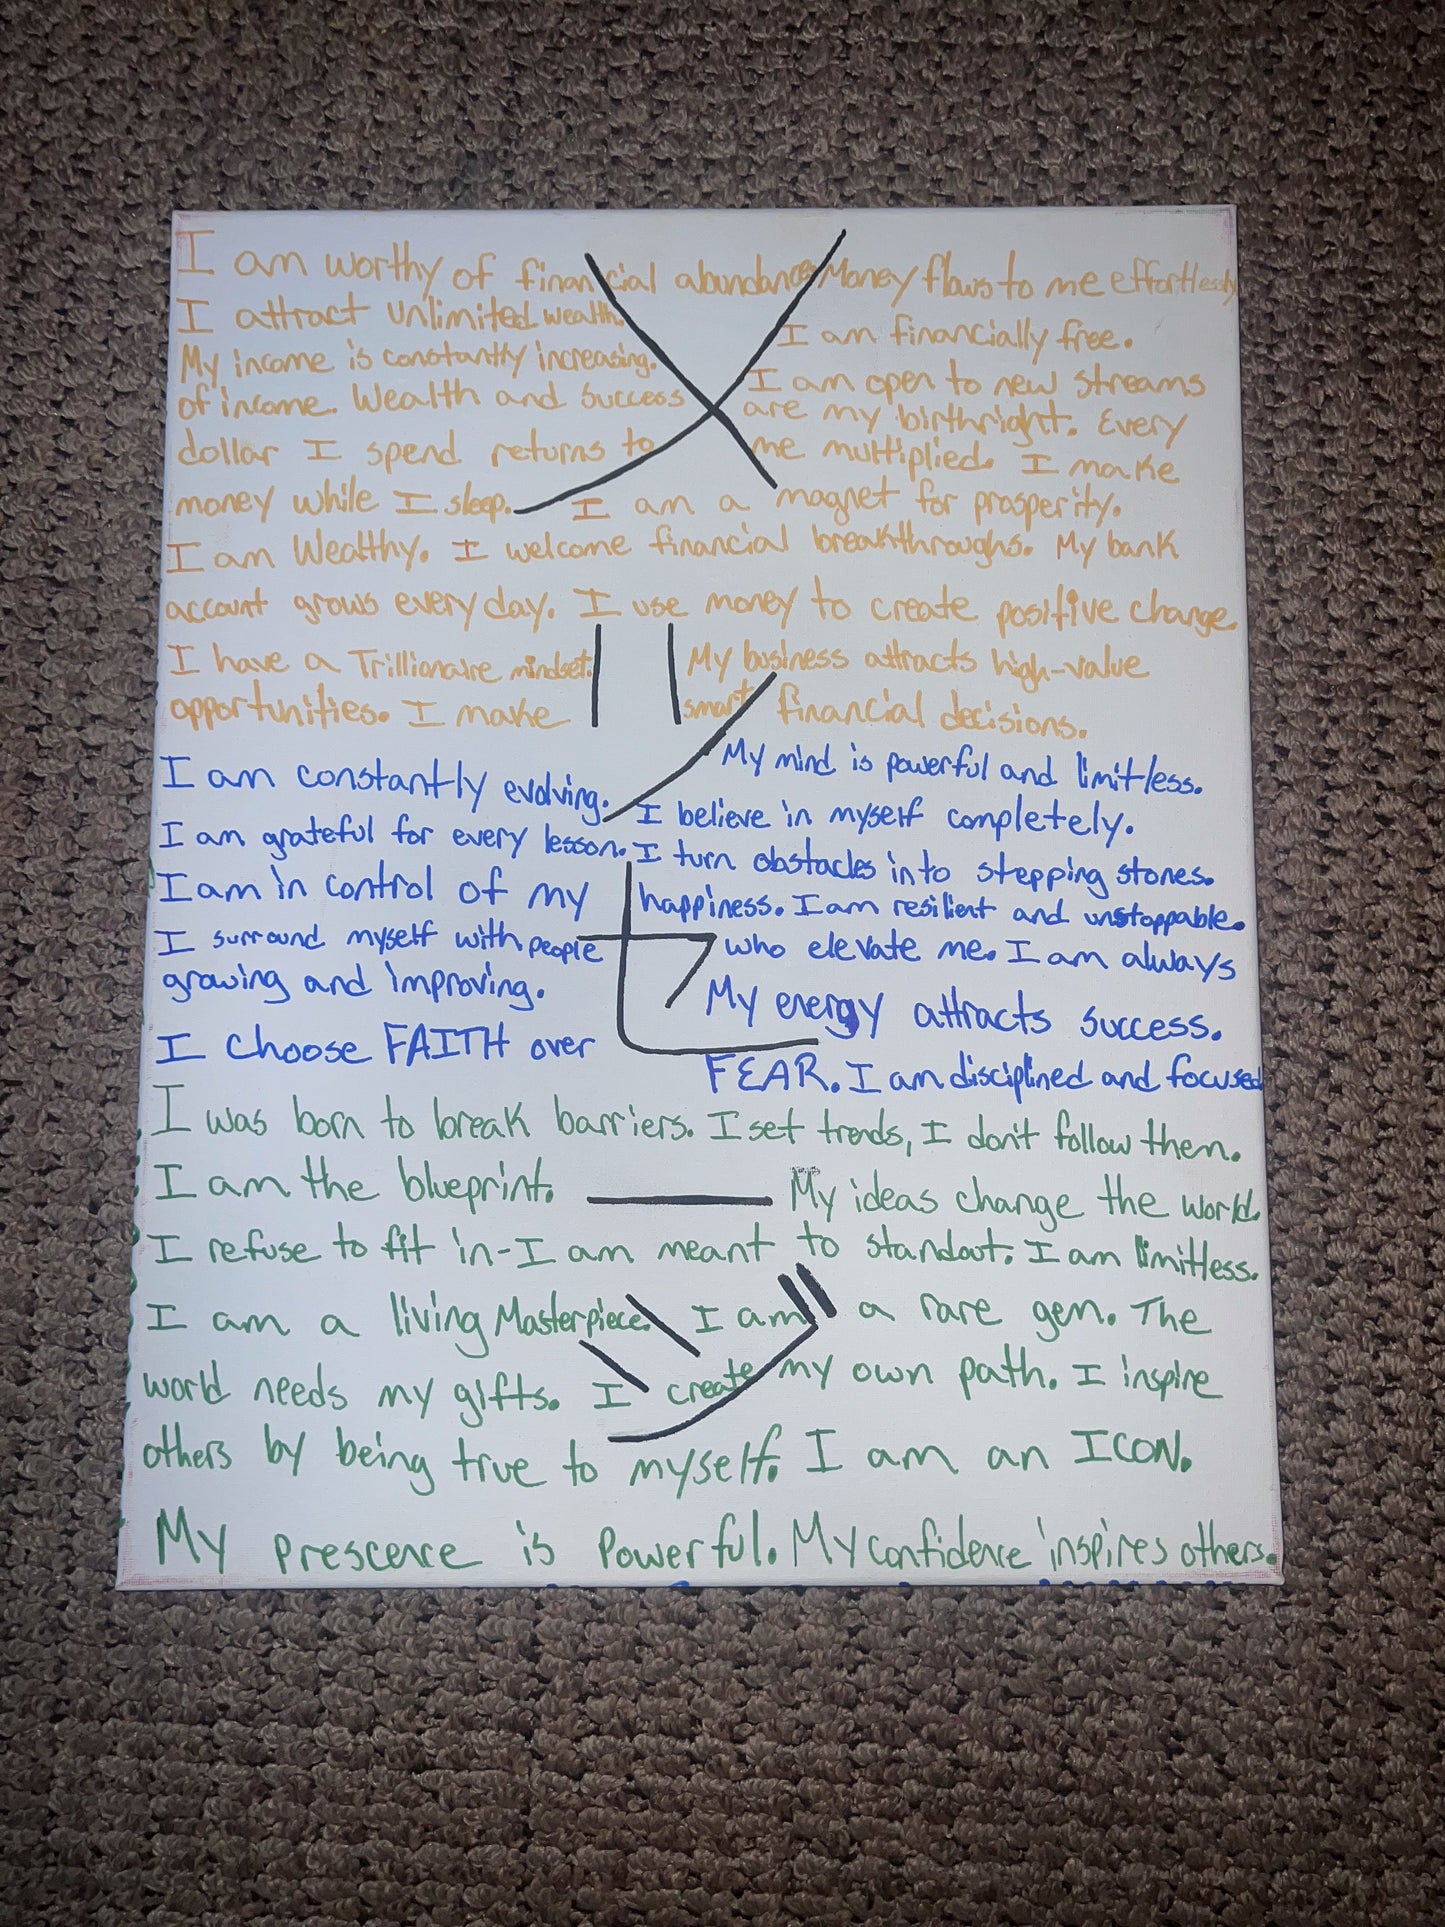 I am worthy of financial abundance. Money flows to me effortlessly
I attract unlimited wealth. I am financially free.
My income is constantly increasing. I am open to new streams
of income. Wealth and Success are my birthright. Every
dollar I spend returns to me multiplied. I make
money while I sleep. I am a magnet for prosperity.
I am Wealthy. I welcome financial breakthroughs. My bank
account grows every day. I use money to create positive change.
I have a Trillionaire mindset. My business attracts high-value
opportunities. I make smart financial decisions.
I am constantly evolving. My mind is powerful and limitless.
I am grateful for every lesson. I believe in myself completely.
I turn obstacles into stepping stones.
I am in control of my happiness. I am resilient and unstoppable.
I surround myself with people who elevate me. I am always
growing and improving. My energy attracts success.
I choose FAITH over FEAR. I am disciplined and focused
I was born to break barriers. I set trends, I don't follow them.
I am the blueprint. My ideas change the world.
I refuse to fit in-I am meant to standout. I am limitless.
I am a living Masterpiece. I am a rare gen. The
world needs my gifts. I create my own path. I inspire
others by being true to myself. I am an ICON.
My prescence is Powerful. My confidence inspires others.
メッセージ